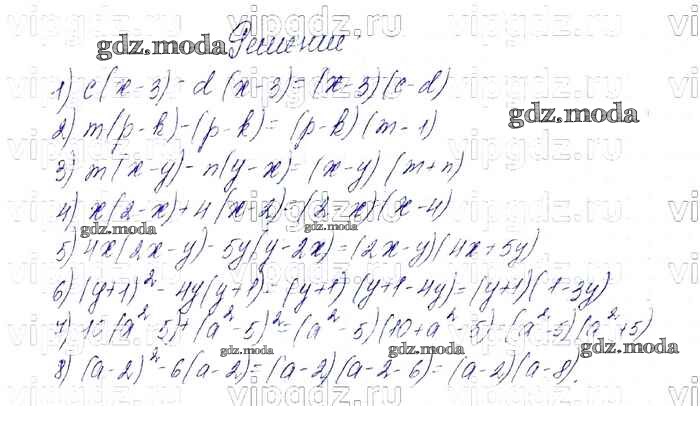 vipgdz.ru vipgdz.ru vipgdz.ru
gdz.moda Решение
1) c(x-3)-d(x-3)=(x-3)(c-d)
gdz.moda
2) m(p-k)-(p-k)=(p-k)(m-1)
3) m(x-y)-n(y-x)=(x-y)(m+n)
4) x(2-x)+4(x-2)=(2-x)(x-4)
gdz.moda gdz.moda
5) 4x(2x-y)-5y(y-2x)=(2x-y)(4x+5y)
6) (y+1)²-4y(y+1)=(y+1)(y+1-4y)=(y+1)(1-3y)
7) 10(a²-5)+(a²-5)²=(a²-5)(10+a²-5)=(a²-5)(a²+5)
gdz.moda gdz.moda gdz.moda
8) (a-2)²-6(a-2)=(a-2)(a-2-6)=(a-2)(a-8).
vipgdz.ru vipgdz.ru vipgdz.ru